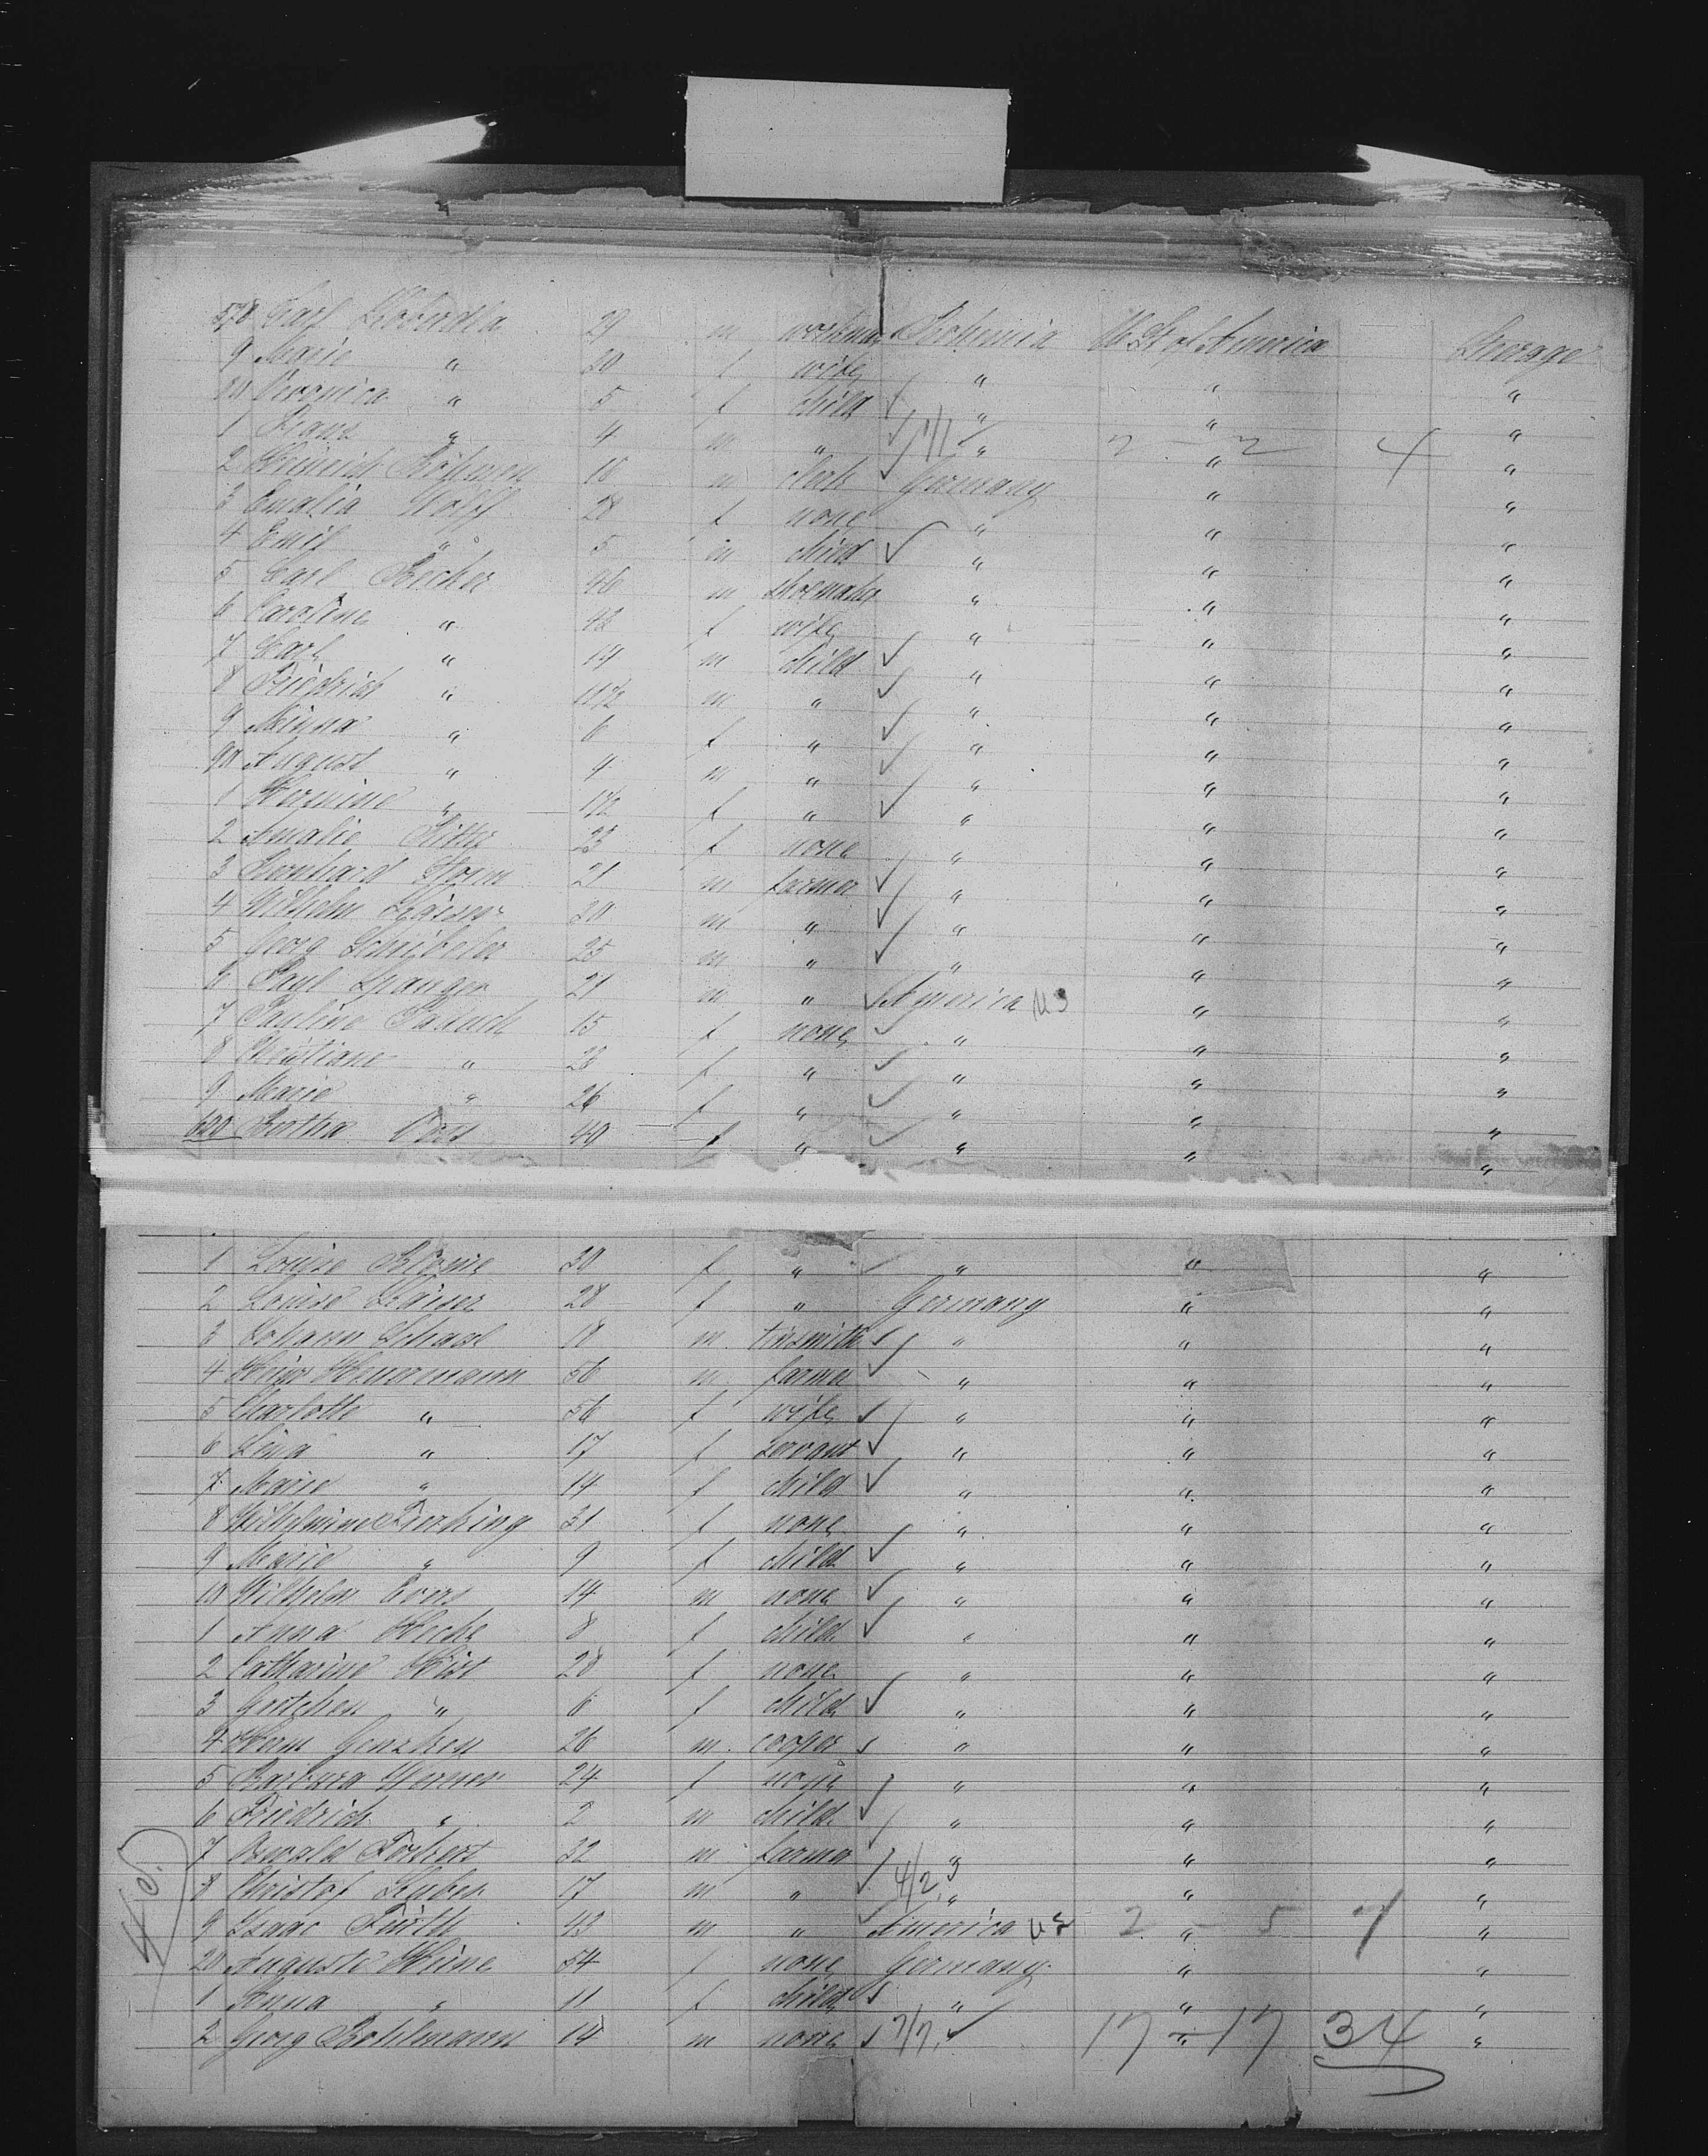 578 Carl 29 m workman Bohemia U. St. of America Steerage
9 Marie " 20 f wife " " "
80 Veronica " 5 f child " " "
1 Franz " 4 m " 1/1 " 2 - 2 " 4 "
2 Heinrich 18 m clerk Germany " "
3 Emalia Wolff 28 f none " " "
4 Emil " 5 m child " " "
5 Carl Becker 46 m shoemaker " " "
6 Caroline " 42 f wife " " "
7 Carl " 14 m child " " "
8 Friedrich " 11½ m " " " "
9 Minna " 6 f " " " "
90 August " 4 m " " " "
1 Hermine " 1½ f " " " "
2 Amalie Ritter 23 f none " " "
3 Bernhard Horn 21 m farmer " " "
4 Wilhelm 20 m " " " "
5 Georg 25 m " " " "
6 Paul Spanger 21 m " America US " "
7 Pauline 15 f none " " "
8 Christiane " 23 f " " " "
9 Marie " 26 f " " " "
600 Bertha 40 f " " " "
1 Louise Blome 30 f " " " "
2 Louise Kaiser 28 f " Germany " "
3 Johann 18 m tinsmith " " "
4 Heinr Heuermann 56 m farmer " " "
5 Charlotte " 56 f wife " " "
6 Lina " 17 f servant " " "
7 Marie " 14 f child " " "
8 Wilhelmine Fierking 31 f none " " "
9 Marie " 9 f child " " "
10 Wilhelm Evers 14 m none " " "
1 Anna Hecht 8 f child " " "
2 Catharine 28 f none " " "
3 Gretchen " 6 f child " " "
4 Herm Genzken 26 m cooper " " "
5 Barbara Werner 24 f none " " "
6 Friedrich " 2 m child " " "
7 Oswald 32 m farmer " " "
8 Christof Huber 17 m " 4/2 " " "
9 Isaac Fürth 43 m " America US 2 " 5 7 "
20 Auguste Heine 54 f none Germany " "
1 Anna " 11 f child " " "
2 Georg Bohlmann 14 m none 7/7 17 - 17 34 "